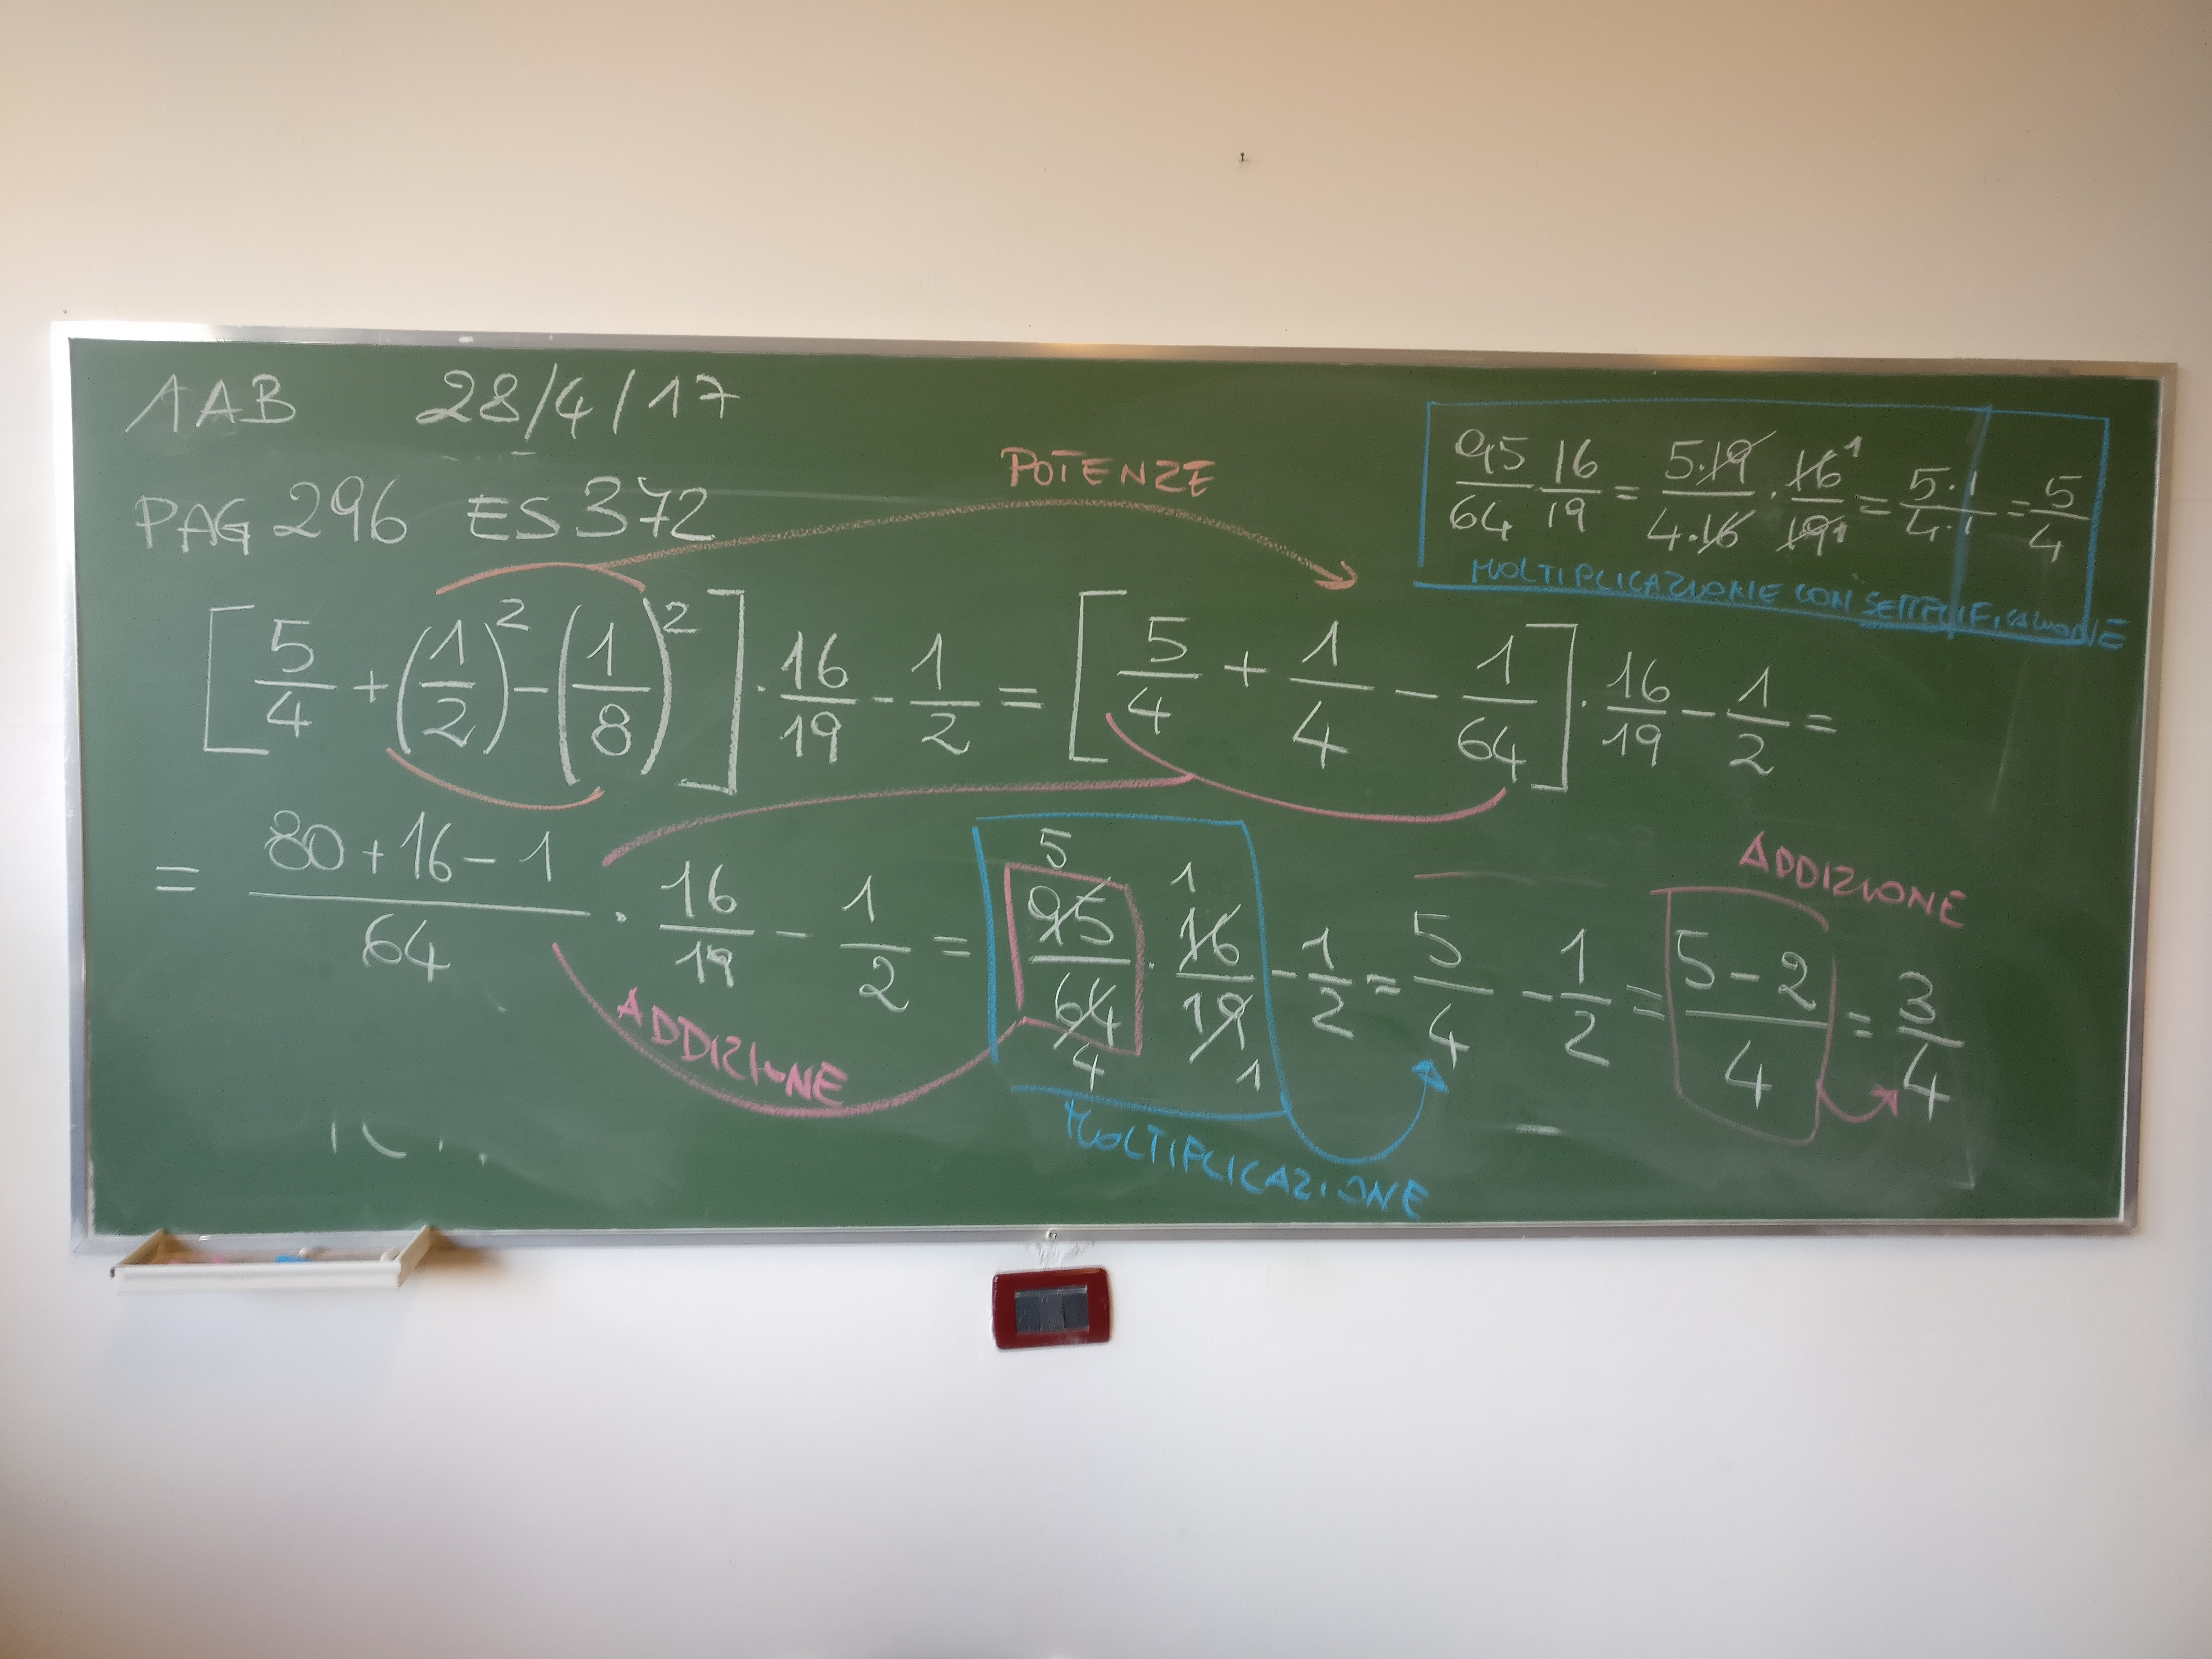 1AB 28/4/17
PAG 296 ES 372
POTENZE
95/64 · 16/19 = 5·19/4·16 · 16/19 1 1 = 5·1/4·1 = 5/4
MOLTIPLICAZIONE CON SEMPLIFICAZIONE
[5/4 + (1/2)² - (1/8)²] · 16/19 - 1/2 = [5/4 + 1/4 - 1/64] · 16/19 - 1/2 =
= 80 + 16 - 1/64 · 16/19 - 1/2 = 5 95/64 4 · 1 16/19 1 - 1/2 = 5/4 - 1/2 = 5 - 2/4 = 3/4
ADDIZIONE
ADDIZIONE
MOLTIPLICAZIONE